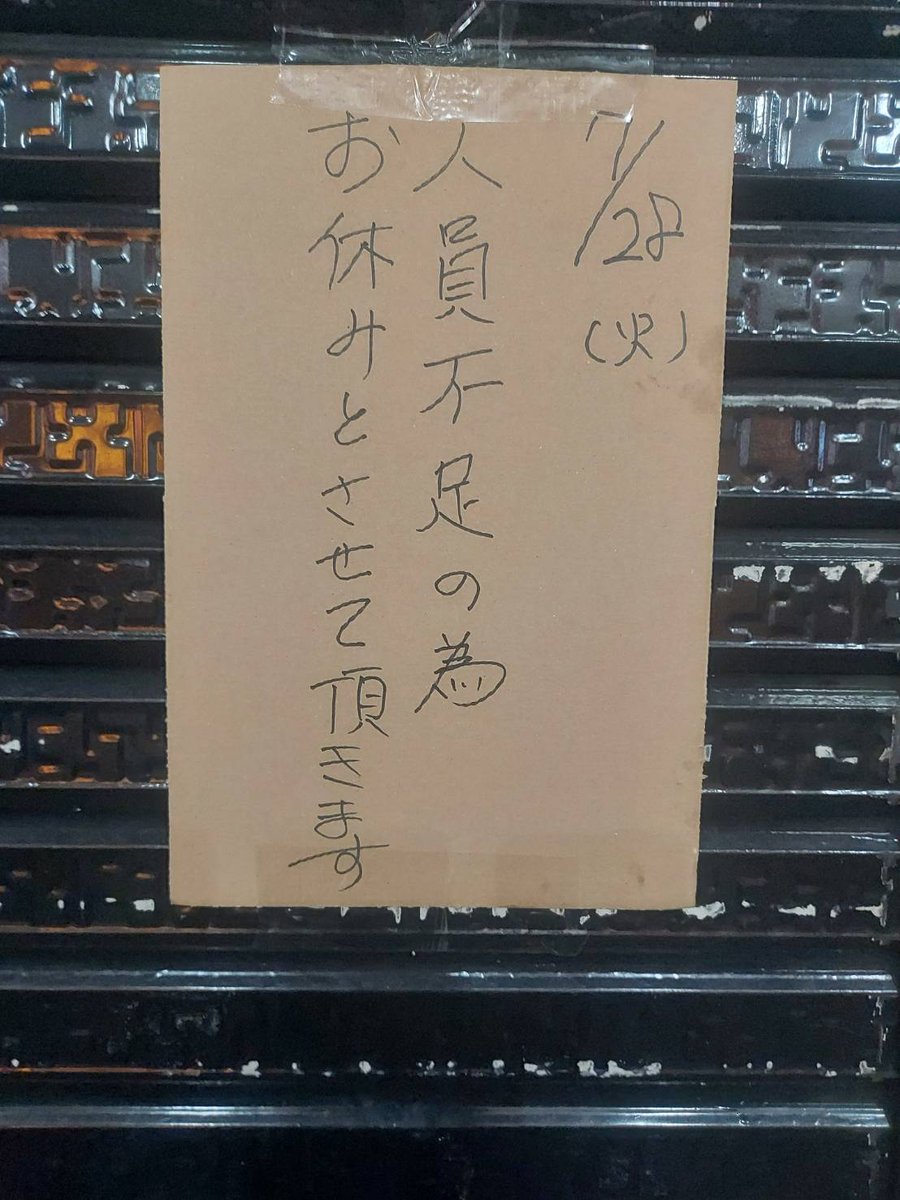 7/28
(火)
人員不足の為
お休みとさせて頂きます